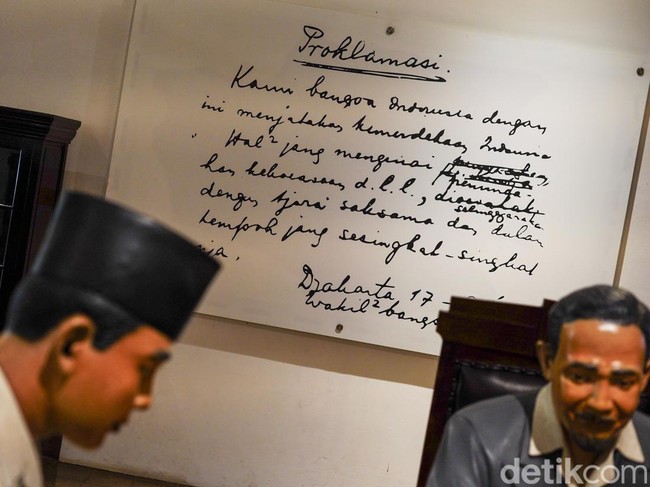 Proklamasi.
Kami bangsa Indonesia dengan
ini menjatakan kemerdekaan Indonesia
Hal² jang mengenai
peminda-
han kekoeasaan d.l.l., dioesahakan
selenggarakan
dengan tjara saksama dan dalam
tempoh jang sesingkat-singkat
nja.
Djakarta 17 -
Wakil² bangs
detikcom